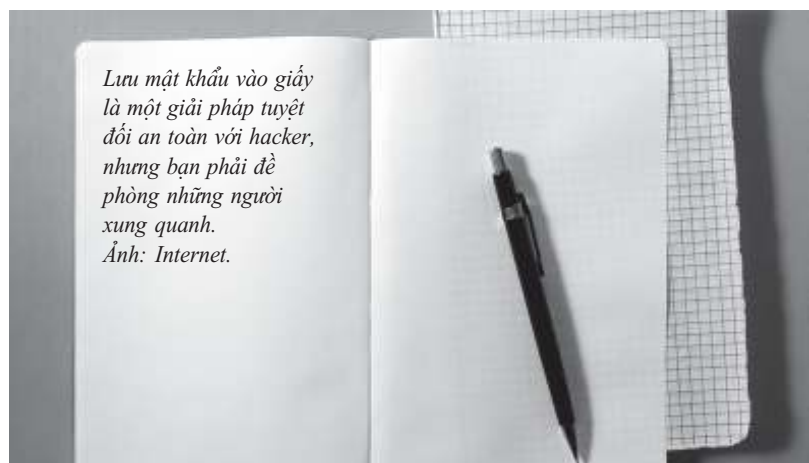 Lưu mật khẩu vào giấy
là một giải pháp tuyệt
đối an toàn với hacker,
nhưng bạn phải đề
phòng những người
xung quanh.
Ảnh: Internet.